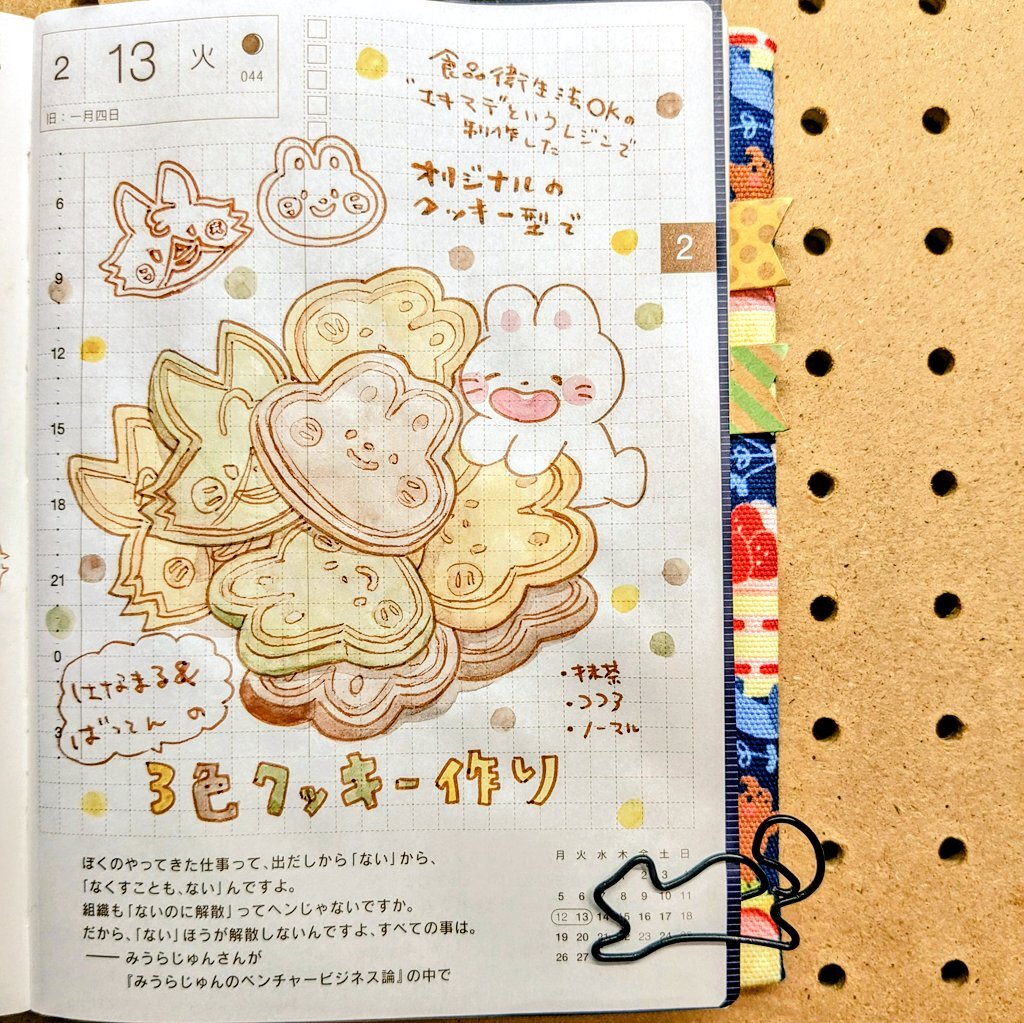 2 13 火
044
旧:一月四日
食品衛生法OKの
"エキマテ"というレジンで
制作した
オリジナルの
クッキー型で
2
6
9
12
15
18
21
0
3
はなまる&
ばってんの
・抹茶
・ココア
・ノーマル
3色クッキー作り
ぼくのやってきた仕事って、出だしから「ない」から、
「なくすことも、ない」んですよ。
組織も「ないのに解散」ってヘンじゃないですか。
だから、「ない」ほうが解散しないんですよ、すべての事は。
── みうらじゅんさんが
『みうらじゅんのベンチャービジネス論』の中で
月 火 水 木 金 土 日
2 3
5 6 7 8 9 10 11
12 13 14 15 16 17 18
19 20 21 22 23 24
26 27